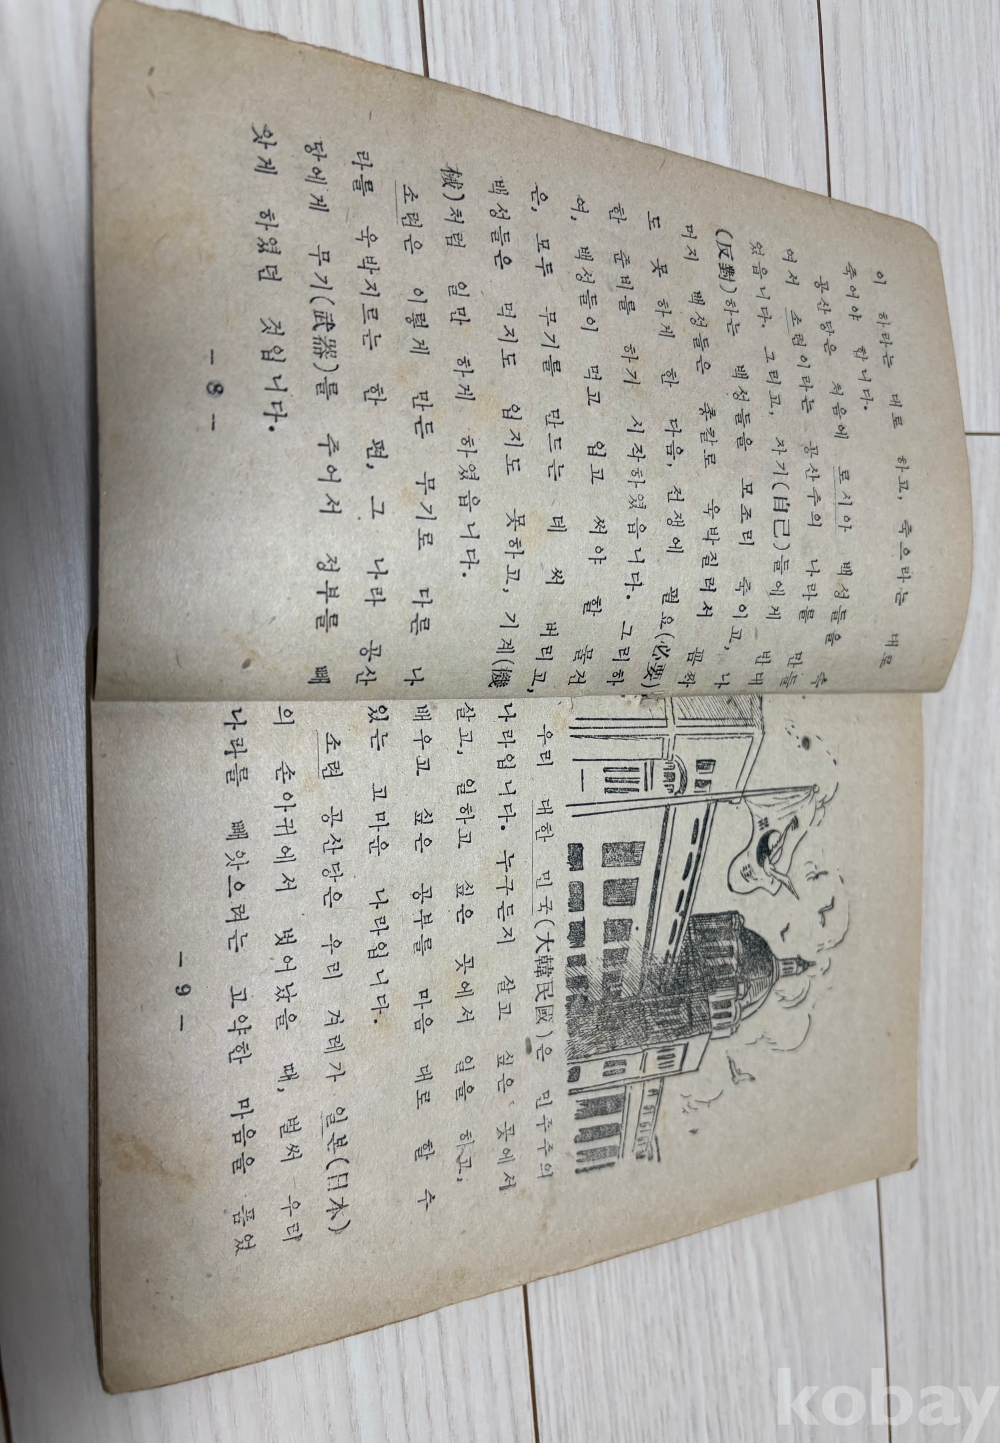 이 하라는 대로 하고, 죽으라는 대로
죽어야 합니다.
공산당은 처음에 로시아 백성들을 죽
여서 소련이라는 공산주의 나라를 만들
었읍니다. 그리고, 자기(自己)들에게 반대
(反對)하는 백성들을 모조리 죽이고, 나
머지 백성들은 총칼로 욱박질러서 꼼짝
도 못 하게 한 다음, 전쟁에 필요(必要)
한 준비를 하기 시작하였읍니다. 그리하
여, 백성들이 먹고 입고 써야 할 물건
은, 모두 무기를 만드는 데 써 버리고,
백성들은 먹지도 입지도 못하고, 기계(機
械)처럼 일만 하게 하였읍니다.
소련은 이렇게 만든 무기로 다른 나
라를 욱박지르는 한 편, 그 나라 공산
당에게 무기(武器)를 주어서 정부를 빼
앗게 하였던 것입니다.
- 8 -
우리 대한 민국(大韓民國)은 민주주의
나라입니다. 누구든지 살고 싶은 곳에서
살고, 일하고 싶은 곳에서 일을 하고,
배우고 싶은 공부를 마음 대로 할 수
있는 고마운 나라입니다.
소련 공산당은 우리 겨레가 일본(日本)
의 손아귀에서 벗어났을 때, 벌써 우리
나라를 빼앗으려는 고약한 마음을 품었
- 9 -
kobay